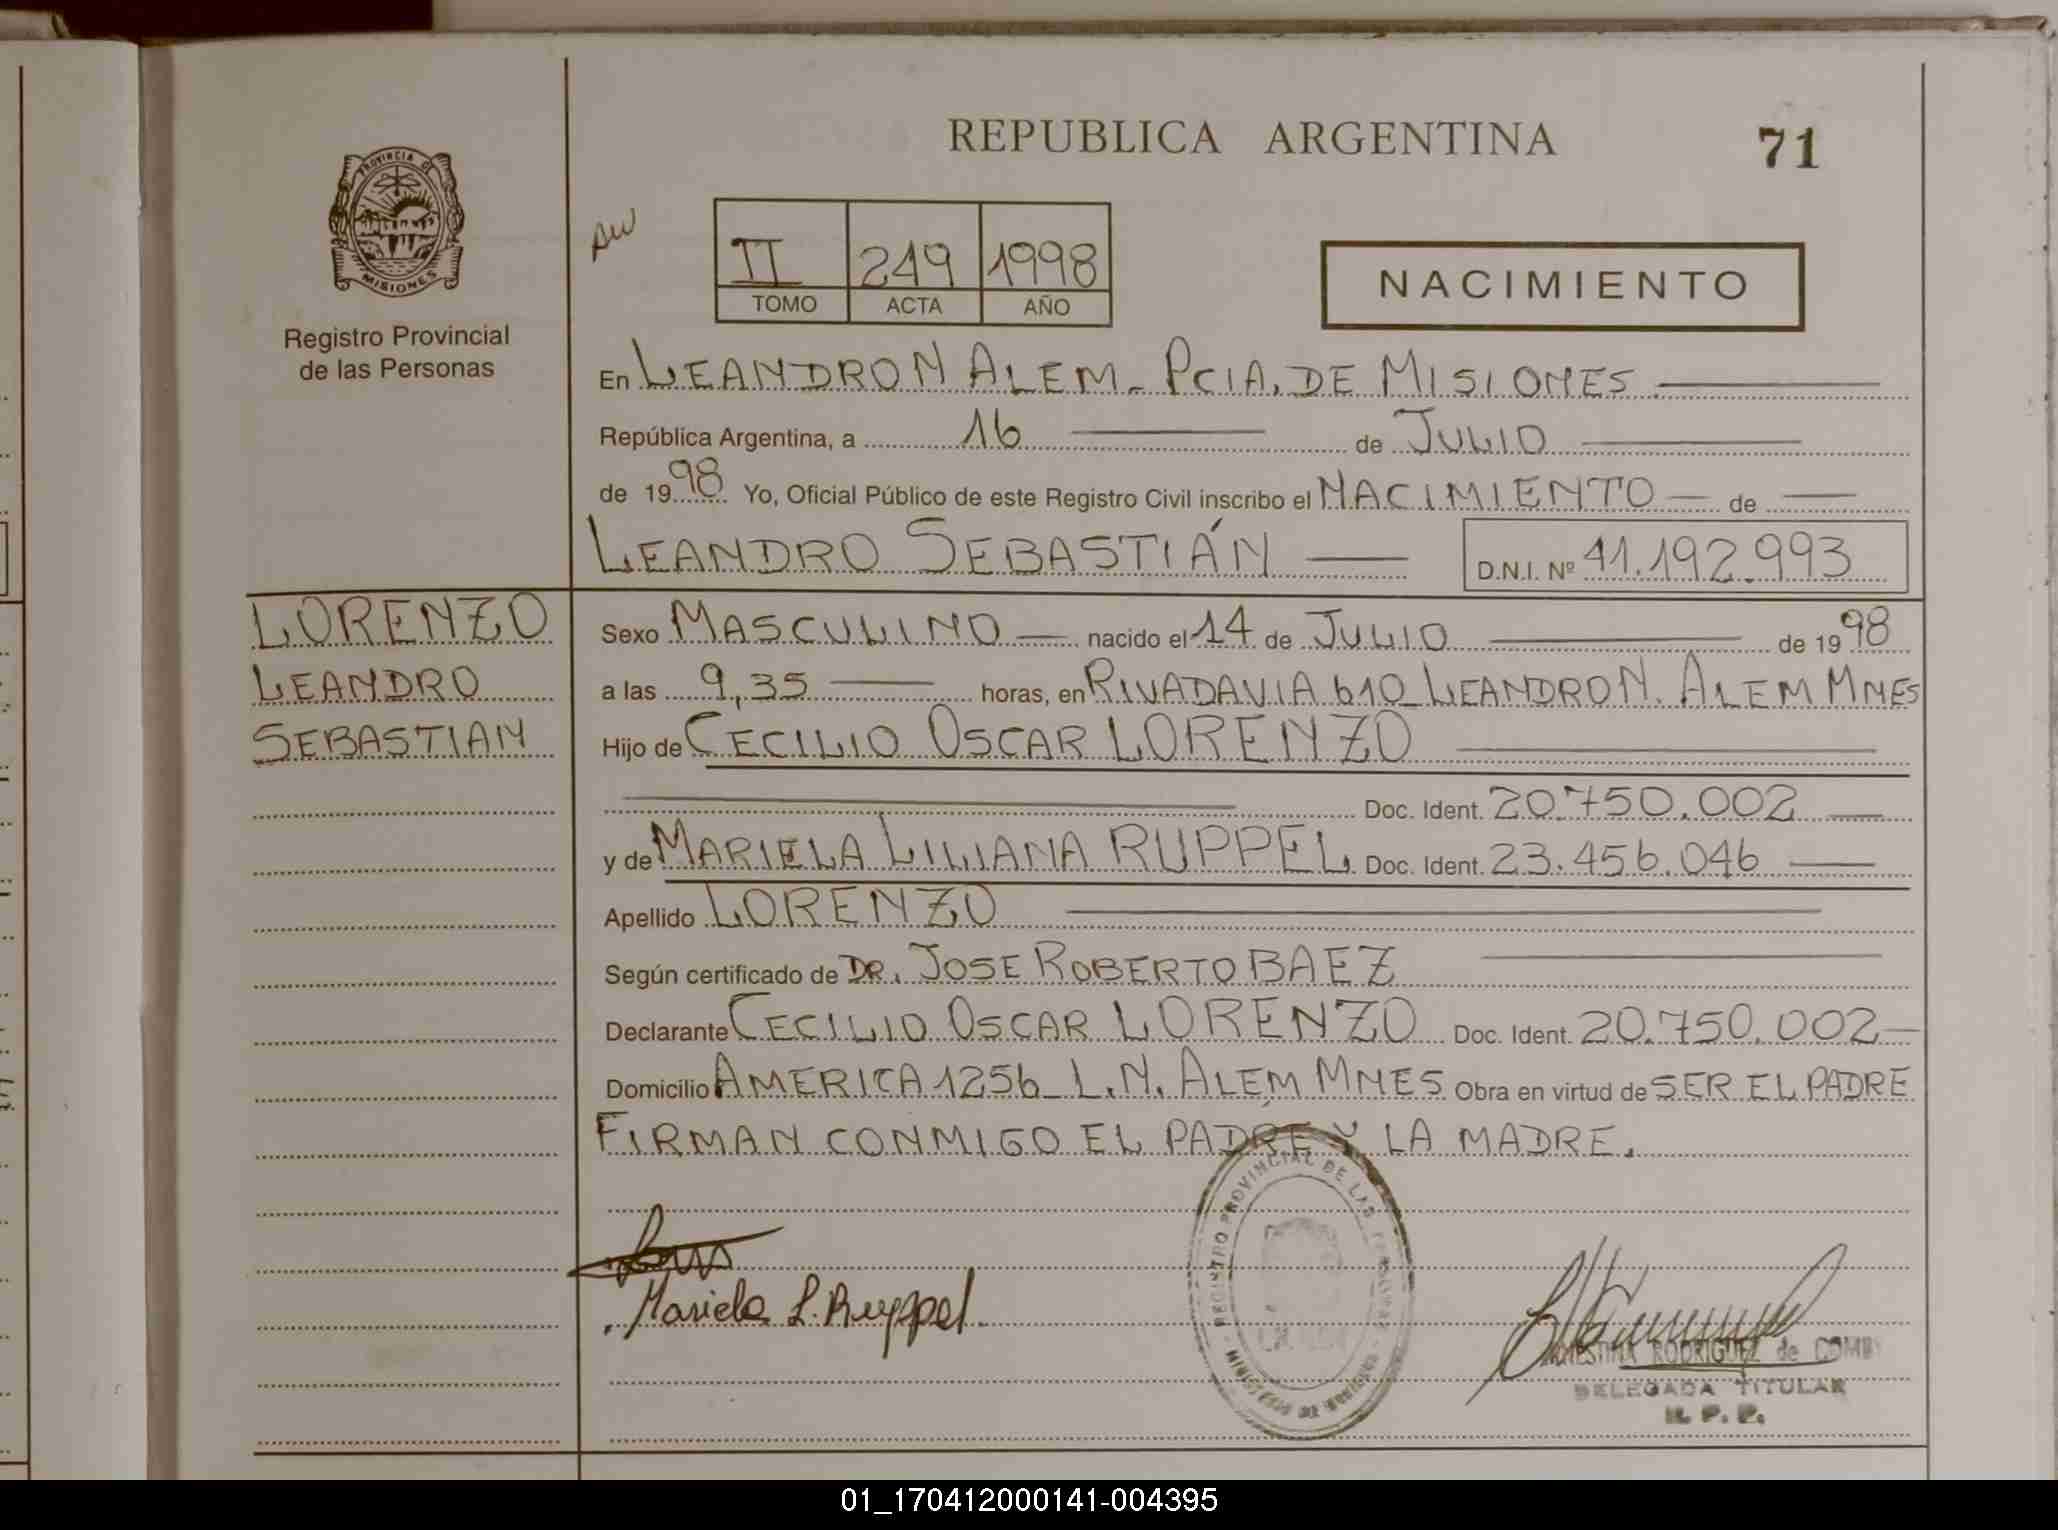 REPUBLICA ARGENTINA
71
PROVINCIA DE
MISIONES
Registro Provincial
de las Personas
II 249 1998
TOMO ACTA AÑO
NACIMIENTO
En LEANDRO N ALEM - PCIA. DE MISIONES
República Argentina, a 16 de JULIO
de 1998 Yo, Oficial Público de este Registro Civil inscribo el NACIMIENTO de
LEANDRO SEBASTIÁN D.N.I. Nº 41.192.993
LORENZO
LEANDRO
SEBASTIAN
Sexo MASCULINO nacido el 14 de JULIO de 1998
a las 9,35 horas, en RIVADAVIA 610 LEANDRO N. ALEM MNES
Hijo de CECILIO OSCAR LORENZO
Doc. Ident. 20.750.002
y de MARIELA LILIANA RUPPEL. Doc. Ident. 23.456.046
Apellido LORENZO
Según certificado de DR. JOSE ROBERTO BAEZ
Declarante CECILIO OSCAR LORENZO Doc. Ident. 20.750.002
Domicilio AMERICA 1256 L.N. ALEM MNES Obra en virtud de SER EL PADRE
FIRMAN CONMIGO EL PADRE Y LA MADRE.
REGISTRO PROVINCIAL DE LAS PERSONAS
MINISTERIO DE GOBIERNO
Mariela L. Ruppel.
RODRIGUEZ de
DELEGADA TITULAR
R. P. P.
01_170412000141-004395